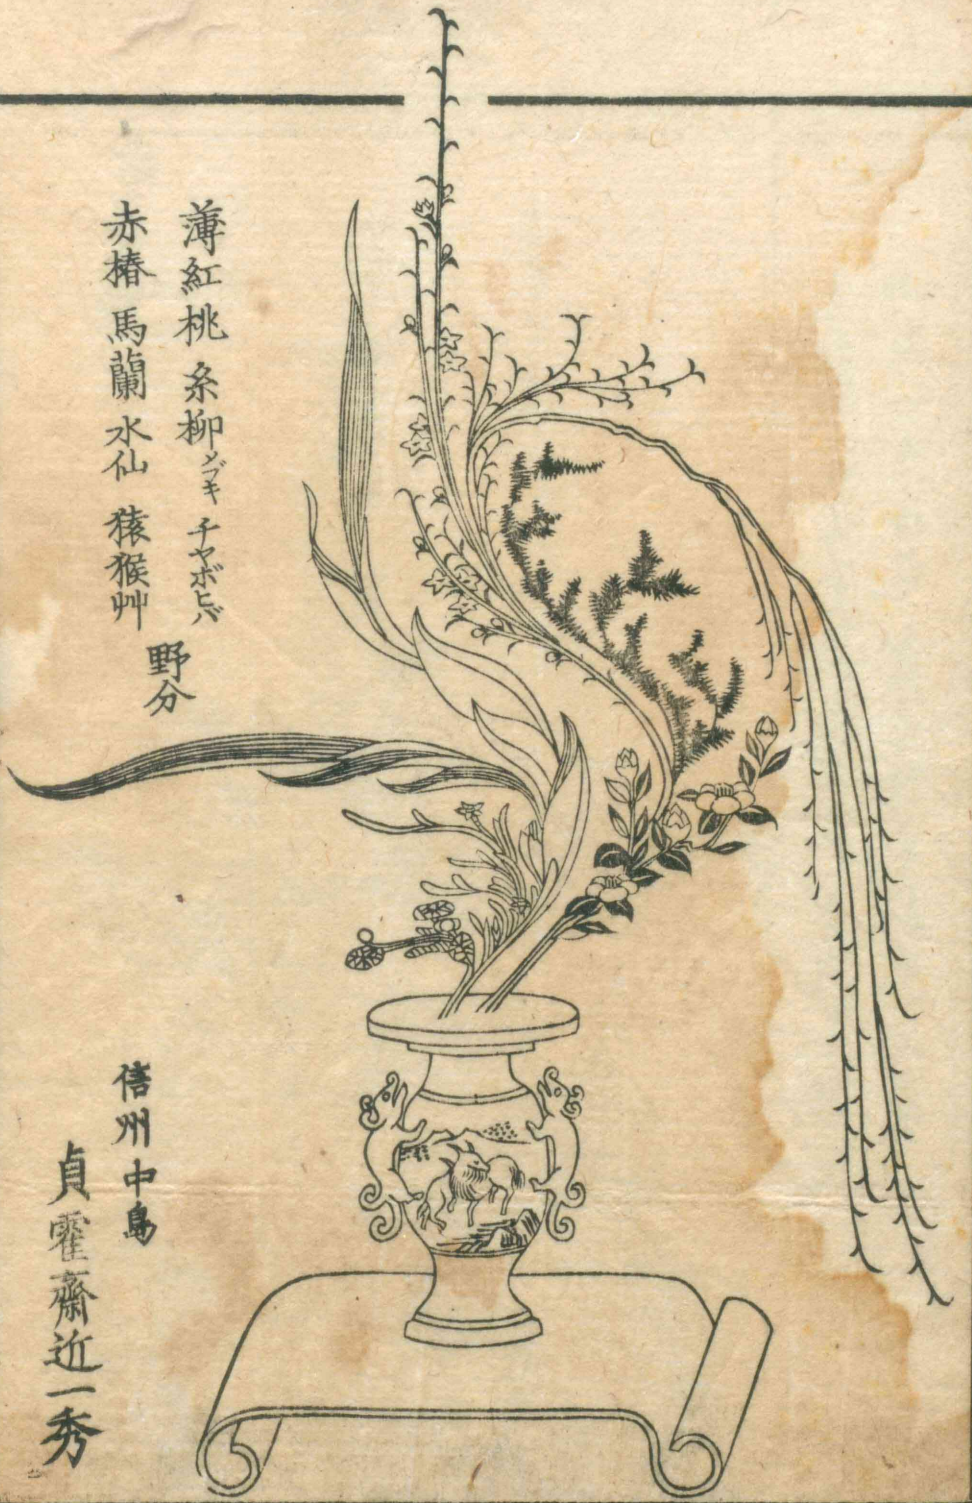 薄紅桃 糸柳 メブキ チヤボヒバ
赤椿 馬蘭 水仙 猿猴艸
野分
信州中島
貞霍齋近一秀